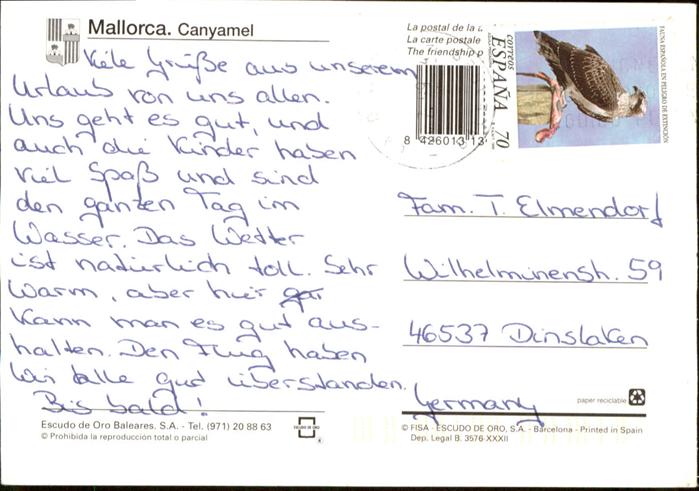 Mallorca. Canyamel
Viele Grüße aus unserem
Urlaub von uns allen.
Uns geht es gut, und
auch die Kinder haben
viel Spaß und sind
den ganzen Tag im
Wasser. Das Wetter
ist natürlich toll. Sehr
warm, aber hier
kann man es gut aus-
halten. Den Flug haben
wir alle gut überstanden.
Bis bald!
Escudo de Oro Baleares, S.A. - Tel. (971) 20 88 63
© Prohibida la reproducción total o parcial
ESCUDO DE ORO
La postal de la
La carte postale
The friendship p
8 426013 13
CORREOS
ESPAÑA 70
FAUNA ESPAÑOLA EN PELIGRO DE EXTINCIÓN
Fam. T. Elmendorf
Wilhelminenstr. 59
46537 Dinslaken
Germany
paper recyclable
© FISA - ESCUDO DE ORO, S.A. - Barcelona - Printed in Spain
Dep. Legal B. 3576-XXXII